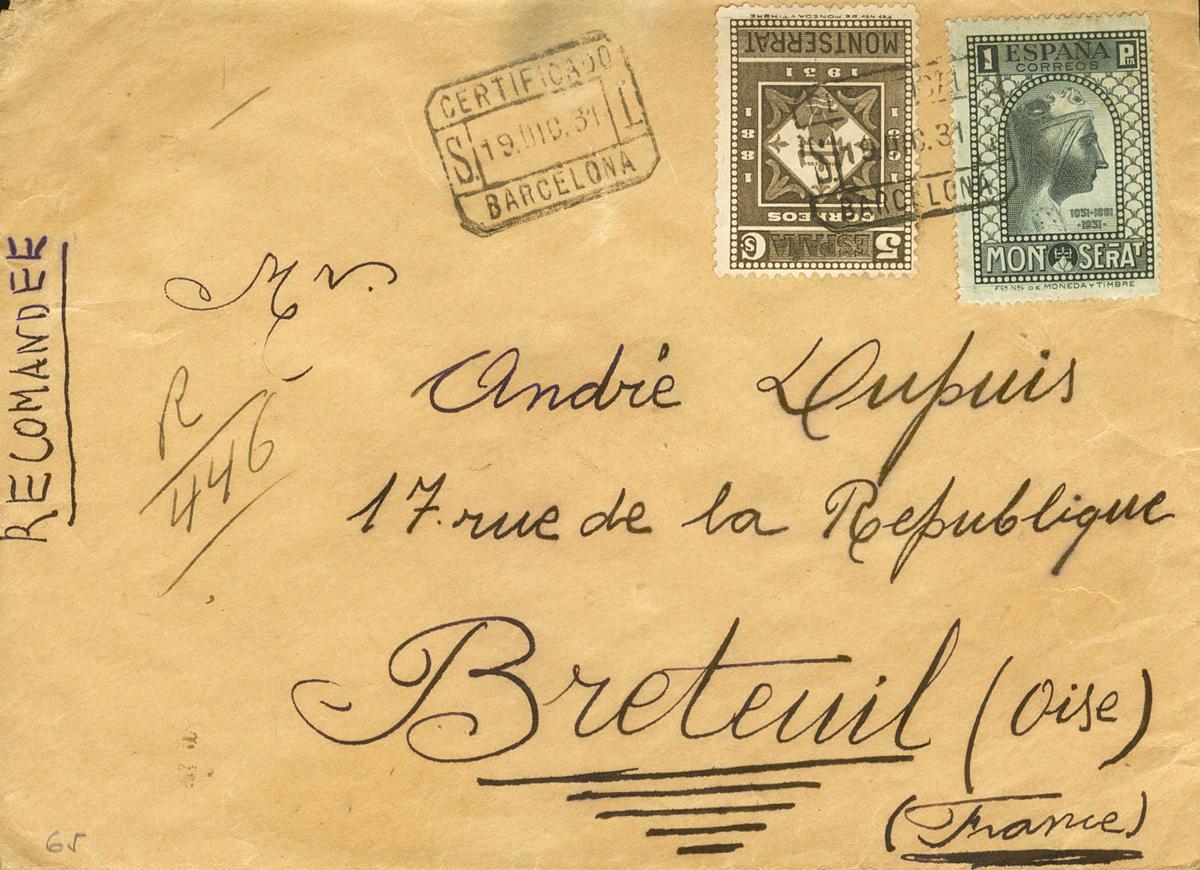 CERTIFICADO
S. 19.DIC.31 L.
BARCELONA
Fca Nal DE MONEDA Y TIMBRE
MONTSERRAT
1931
1881 1931
CORREOS
5 Cs ESPAÑA
S. 19.DIC.31
BARCELONA
1 ESPAÑA Pta
CORREOS
1031-1881
-1931-
MONTSERAT
Fca Nal DE MONEDA Y TIMBRE
RECOMANDEE
Mr.
André Dupuis
R
446
17. rue de la Republique
Breteuil (Oise)
(France)
65